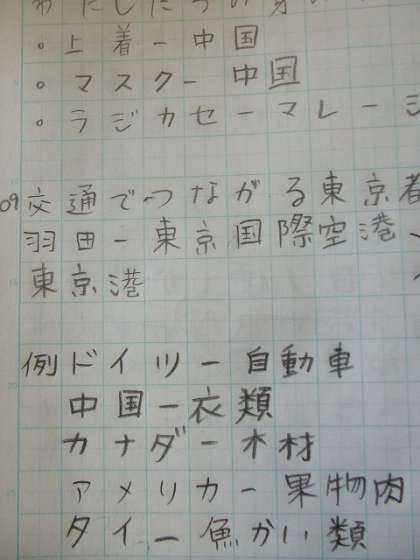 わたしたちの身の
。上着ー中国
。マスクー中国
。ラジカセーマレージ
09交通でつながる東京都
羽田ー東京国際空港、
東京港
例ドイツー自動車
中国ー衣類
カナダー木材
アメリカー果物肉
タイー魚かい類